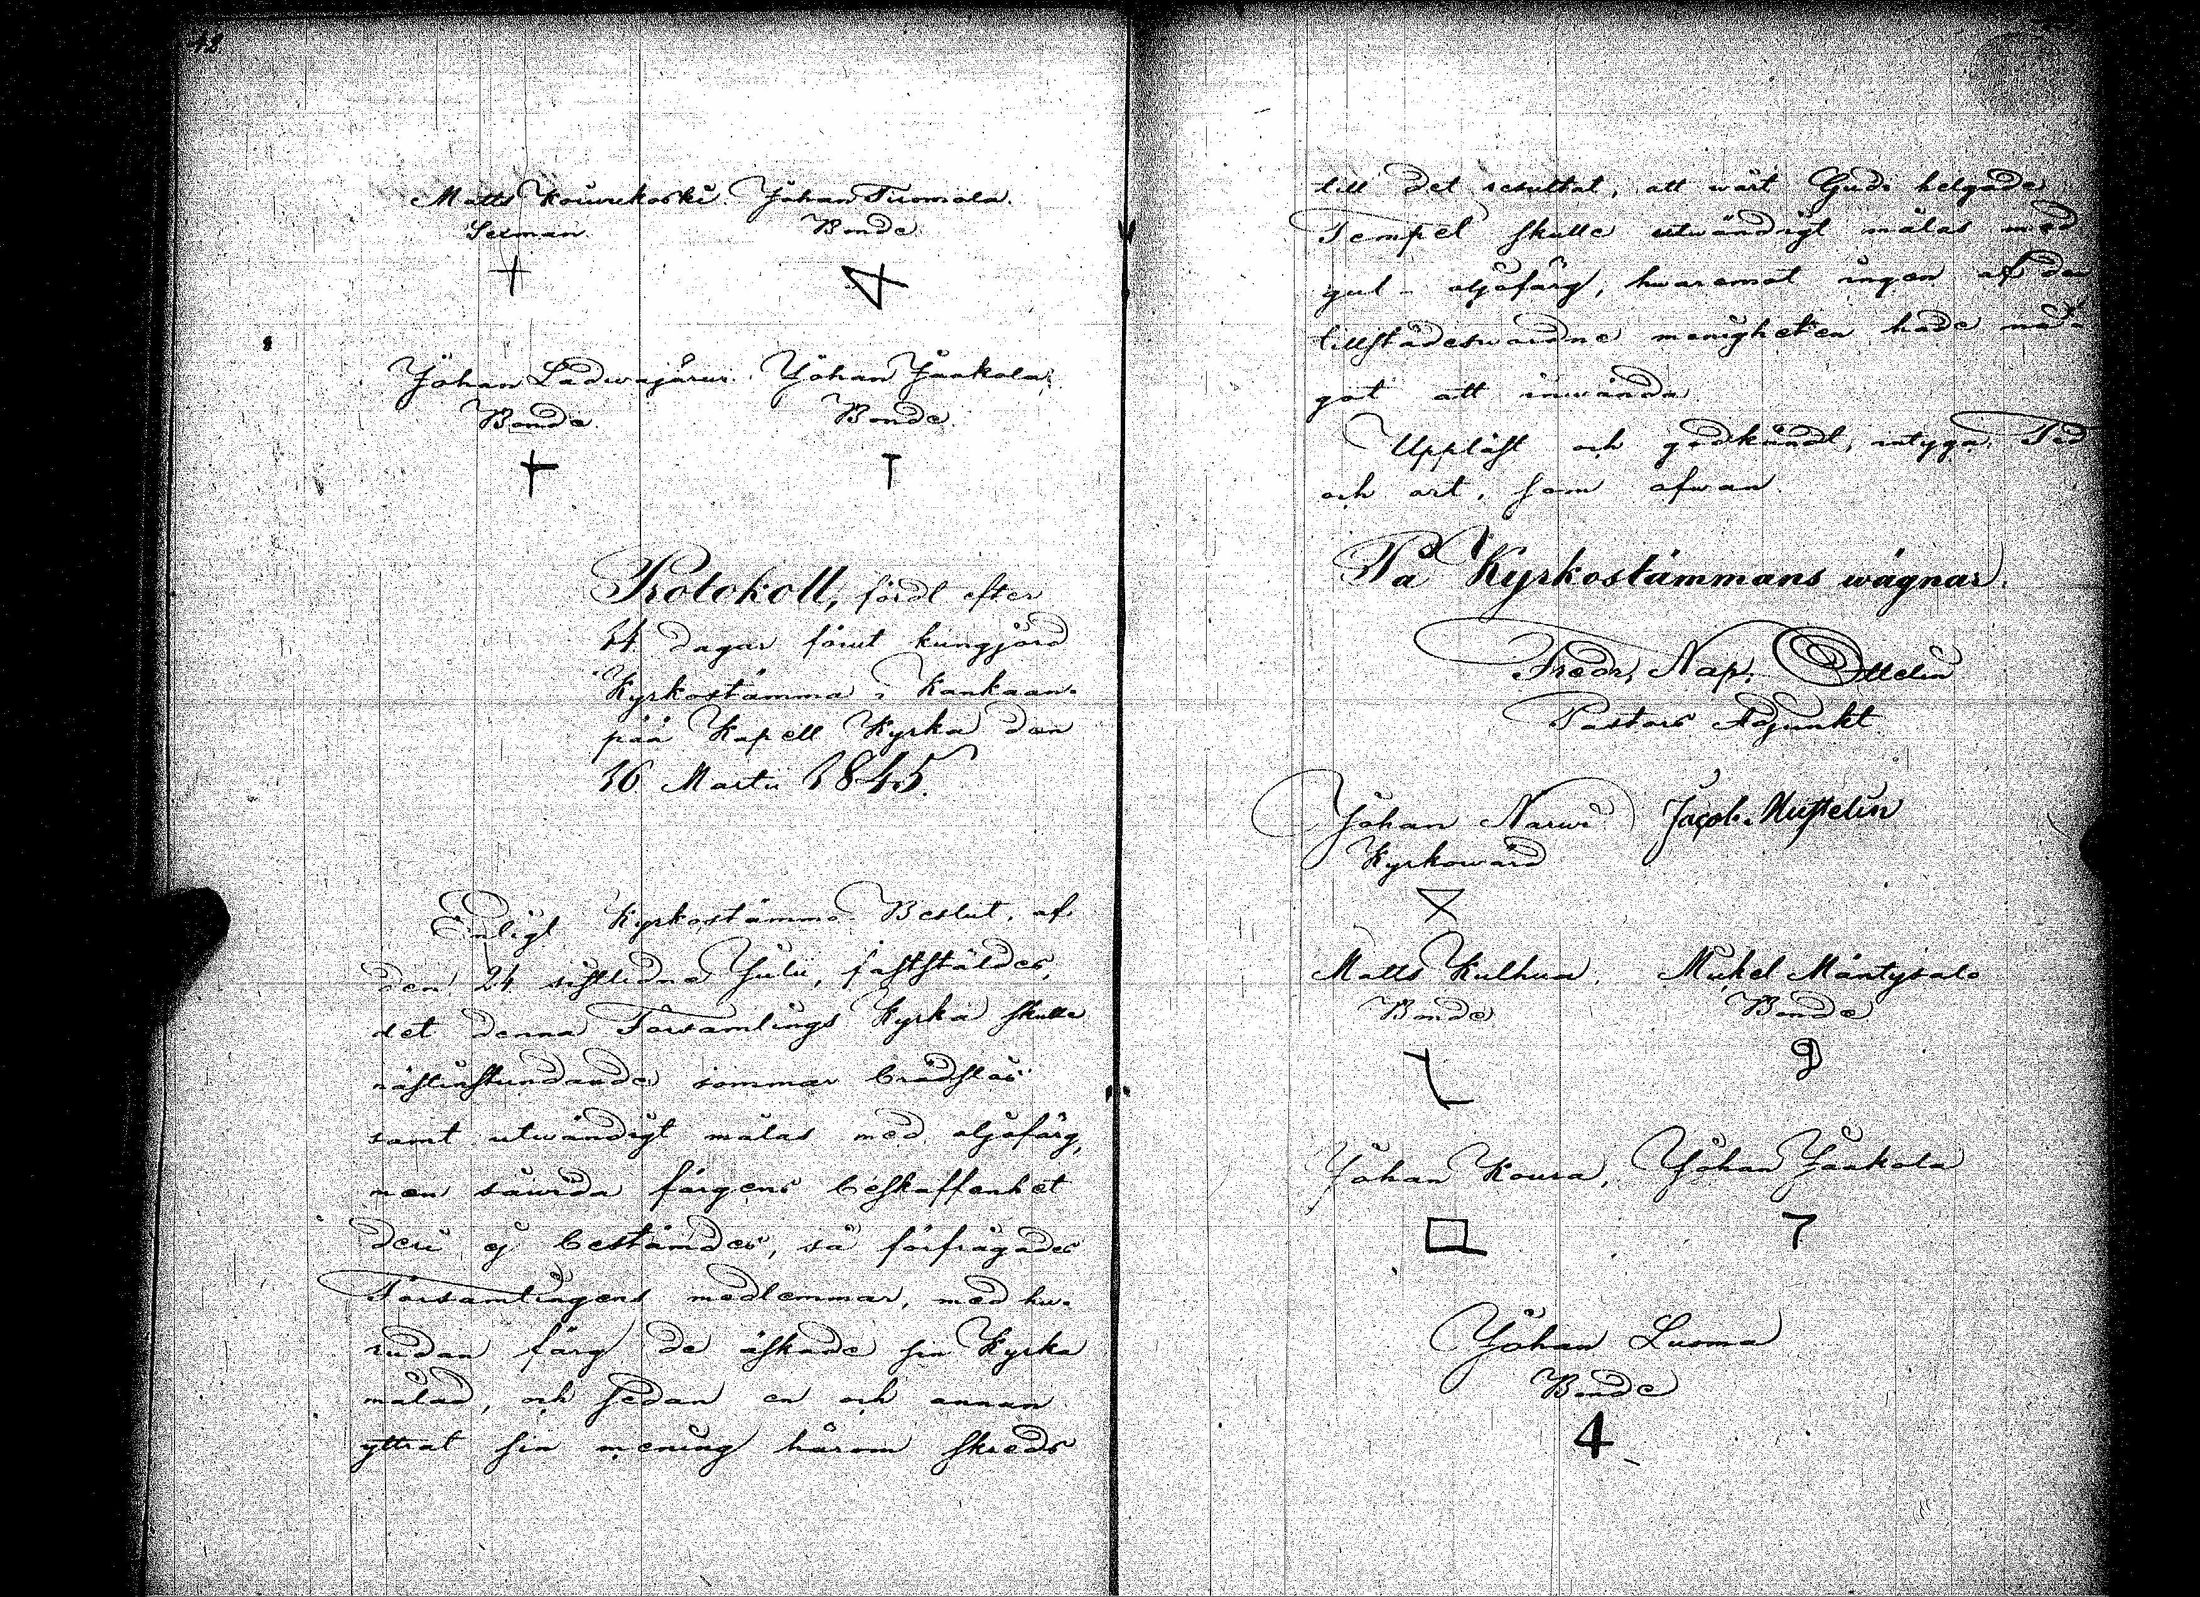 48
Matts Kourekoski. Johan Tuomola.
Sexman Bonde
Johan Ladwajärwi. Johan Jaakola.
Bonde Bonde.
Protokoll, fördt efter
14 dagar förut kungjord
Kyrkostämma i Kankaan-
pää Kapell Kyrka den
16 Martii 1845.
Enligt Kyrkostämmo Beslut, af
den 24 sistledne Julii, fastställdes,
det denna Församlings Kyrka skulle
nästinstundande sommar brädslås
samt utwändigt målas med oljefärg,
men såwida färgens beskaffenhet
deri ej bestämdes, så förfrågades
Församlingens medlemmar, med hu-
rudan färg de äskade sin Kyrka
målad, och sedan en och annan
yttrat sin mening härom skreds
till det resultat, att wårt Gudi helgade
Tempel skulle utwändigt målas med
gul oljefärg, hwaremot ingen af den
tillstädeswardne menigheten hade nå-
got att inwända.
Uppläst och godkändt, intyga. Tid
och ort, som ofwan
På Kyrkostämmans wägnar.
Fredr. Nap. Ottelin
Pastors Adjunkt
Johan Narwi Jacob
Kyrkowärd
Matts Kulhua. Mickel Mäntysalo
Bonde Bonde
Johan Koura, Johan Jaakola
Johan Luoma
Bonde
4